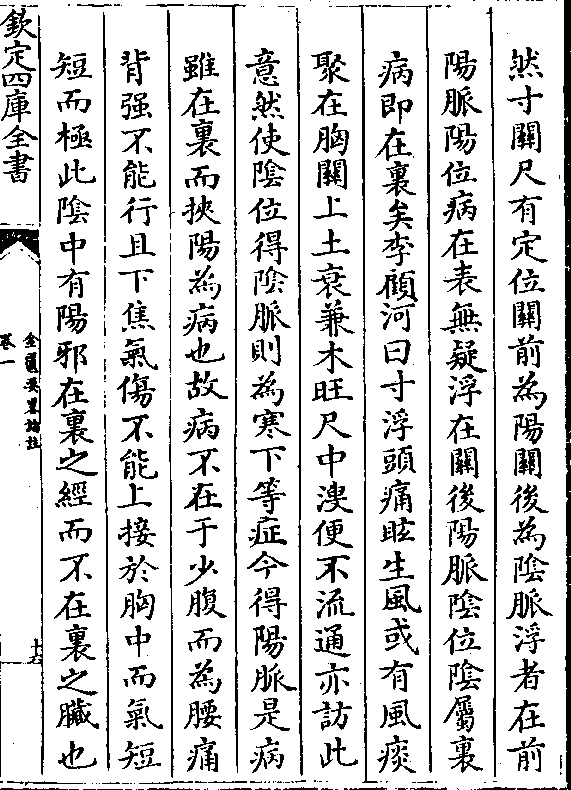 然寸關尺有定位關前為陽關後為陰脈浮者在前
陽脈陽位病在表無疑浮在關後陽脈陰位陰屬裏
病即在裏矣李頻河曰寸浮頭痛眩生風或有風痰
聚在胸關上土衰兼木旺尺中溲便不流通亦訪此
意然使陰位得陰脈則為寒下等症今得陽脈是病
雖在裏而挾陽為病也故病不在于少腹而為腰痛
背强不能行且下焦氣傷不能上接於胸中而氣短
短而極此陰中有陽邪在裏之經而不在裏之臟也
欽定四庫全書
金匱要畧論註
卷一